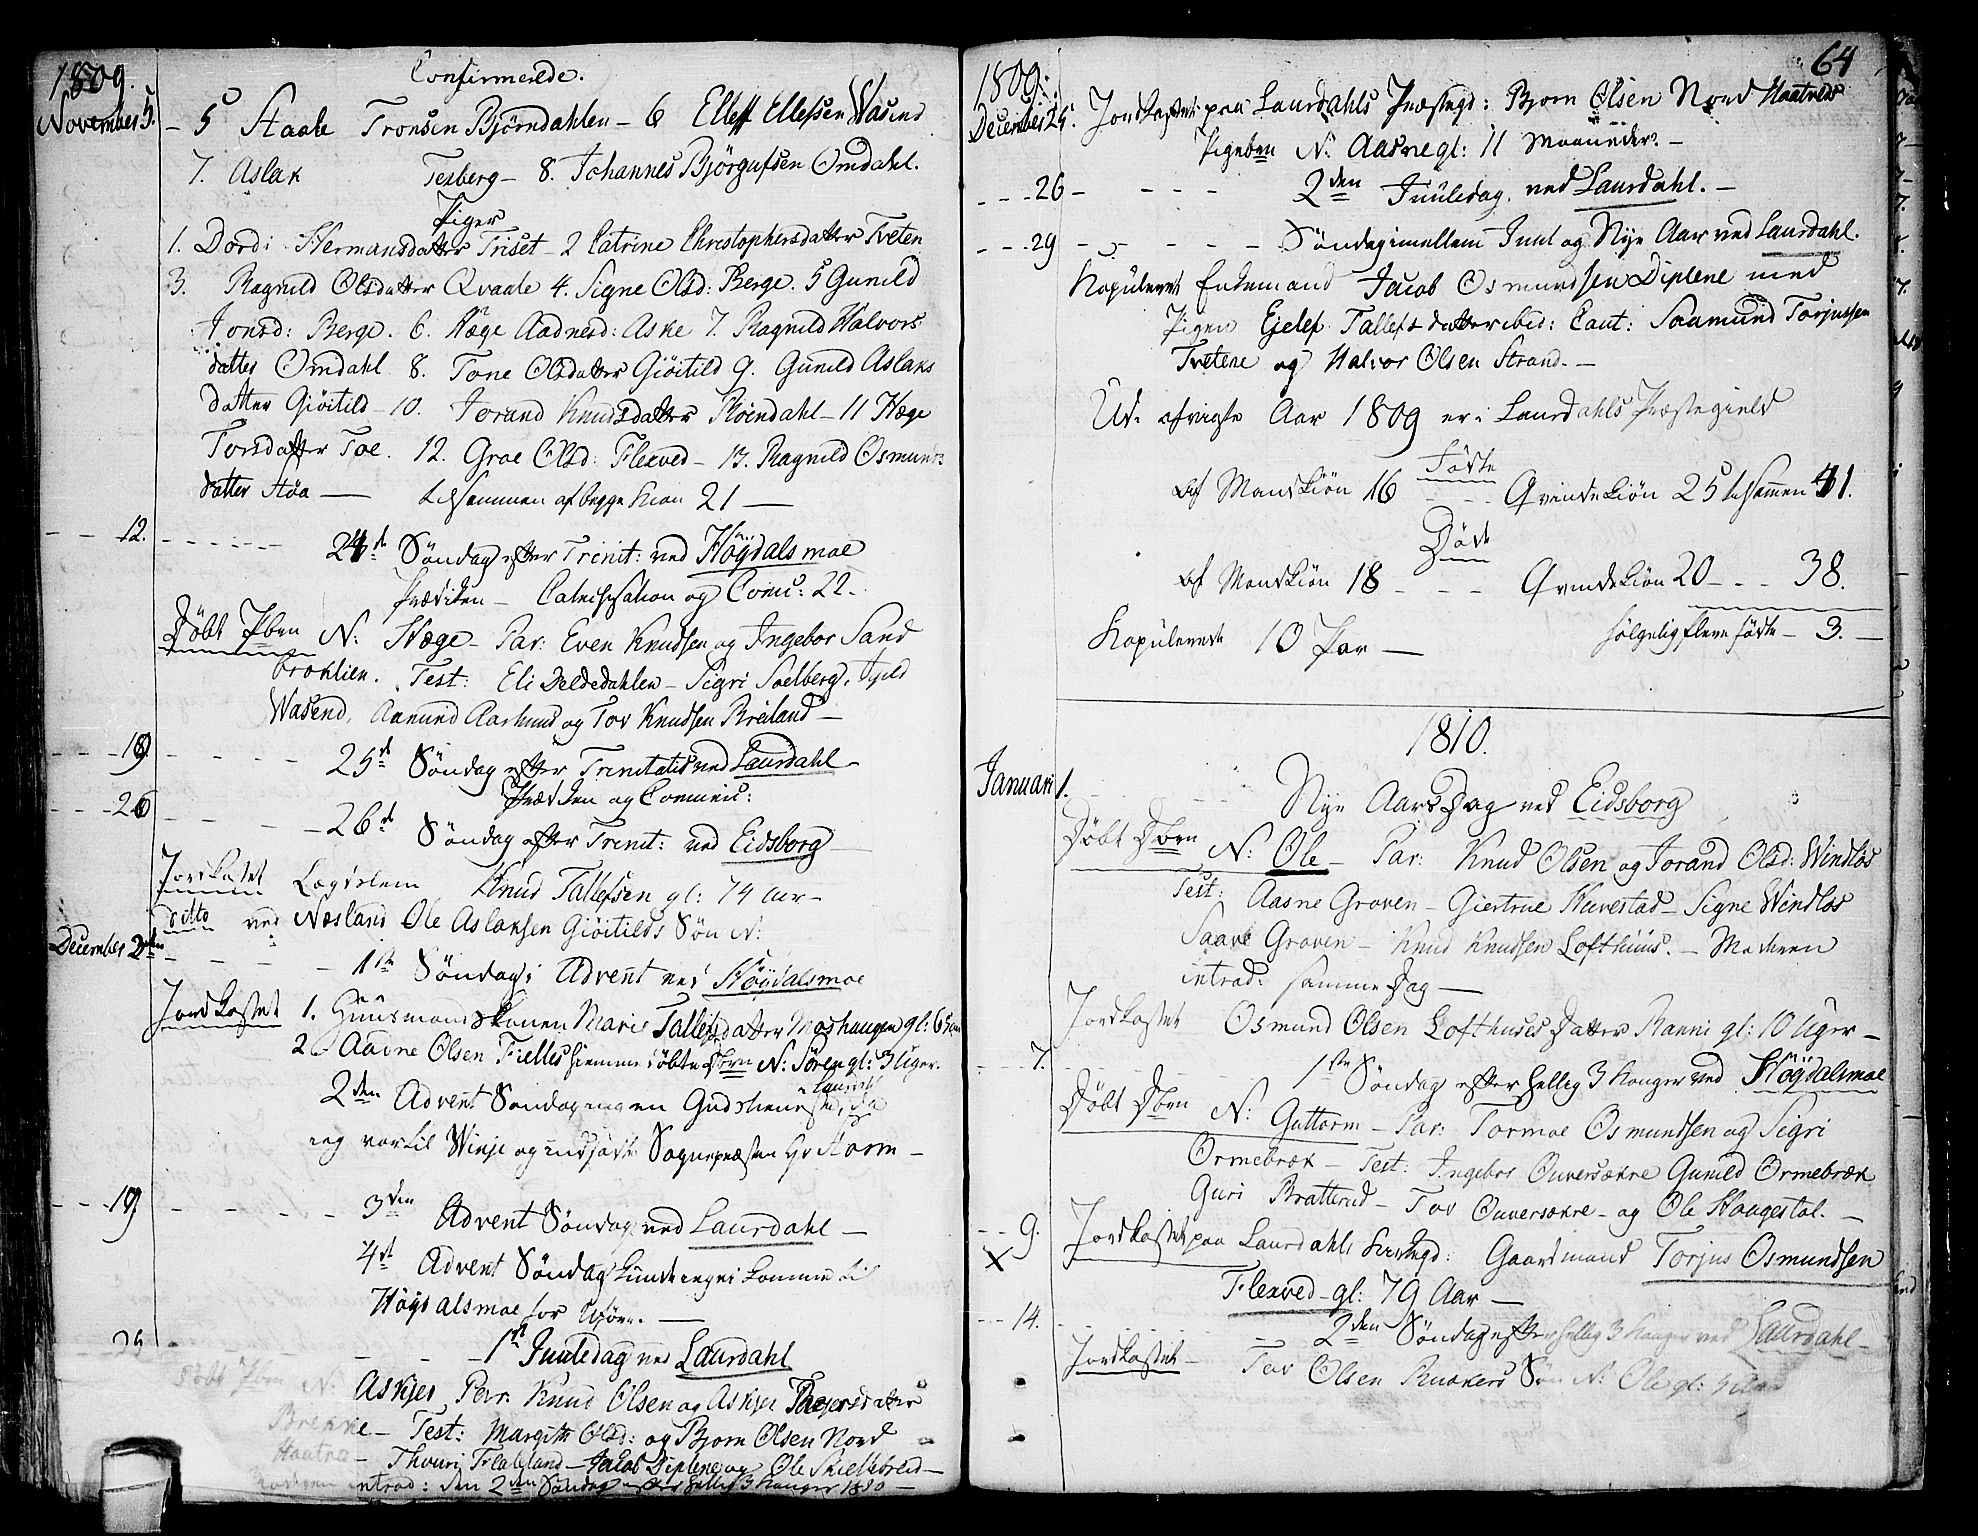 1809. Confirmerede.
November 5. – 5 Staale Tronsen Björndahlen – 6 Ellef Ellefsen Wasend
7. Aslak Texberg – 8. Johannes Björgufsen Omdahl.
Piger
1. Dordi Hermansdatter Triset – 2 Catrine Christophersdatter Tveten
3. Ragnild Olsdatter Qvaale 4. Signe Olsd: Berge. 5 Gunild
Jonsd: Berge. 6. Hæge Aadnesd: Aske 7. Ragnild Halvors
datter Omdahl 8. Tone Olsdatter Giöitild 9. Gunild Aslaks
datter Giöitild – 10. Jorand Knudsdatter Röindahl – 11 Hæge
Torsdatter Toe. 12. Groe Olsd: Flexved – 13. Ragnild Osmunds
datter Stöa — tilsammen af begge Kiön 21 —
12. 24d Söndag efter Trinit: ved Högdalsmoe
Prædiken – Catechisation og Comu: 22.
Döbt Pbrn N: Hæge – Par: Even Knudsen og Ingebor Sand
broklien. Test: Eli Deldedahlen – Sigri Soelberg,
Wasend, Aamund Aarhuus og Tov Knudsen Breiland –
19 25d Söndag efter Trinitatis ved Laurdahl –
Prædiken og Communic:
26 – 26d Söndag efter Trinit: ved Eidsborg
Jordkastet Lægdslem Knud Tallefsen gl: 74 aar –
ditto ved Næsland Ole Aslaksen Giöitilds Sön N:
December 3den 1ste Söndag i Advent ved Höydalsmoe
Jordkastet 1. Huusmandskonen Marie Tallefsdatter Moshaugen gl: 65 aar
2. Aadne Olsen Fielles hiemmedöbte Dbrn N: Sören gl: 3 Uger.
2den Advent Söndag ingen Gudstieneste, da
Laurdal
ieg var til Winje og indförte Sognepræsten Hr Storm –
19. 3den Advent Söndag ved Laurdahl –
4d Advent Söndag kunde ieg ei komme til
Högdalsmoe for Uföre. —
25 1st Juuledag ved Laurdahl
Döbt Pbrn N: Askjer Par: Knud Olsen og Askjer Tarjersdatter
Brekke – Test: Margith Olsd: og Bjorn Olsen Nord
Haatvet – Thouri Flateland – Jacob Diplene og Ole Skielbreid –
Moderen introd: den 2den Söndag efter hellig 3 Konger 1810 –
64
1809.
December 25. Jordkastet paa Laurdahls Præstegd: Bjorn Olsen Nord Haatveds
Pigebrn N: Aasne gl: 11 Maaneder. –
26 – 2den Juuledag ved Laurdahl. –
29 – Söndag imellem Juul og Nye Aar ved Laurdahl.
Kopuleret Enkemand Jacob Osmundsen Diplene med
Pigen Ejelef Tallefsdatter ibid: Caut: Saamund Torjussen
Tvetene og Halvor Olsen Strand. –
Udi afvigte Aar 1809 er i Laurdahls Præstegield
Födte
af Mandkiön 16 – – – Qvindekiön 25 tilsammen 41.
Döde
af Mandkiön 18 – – – Qvindekiön 20 – – – 38.
Kopulerede 10 Par — fölgelig flere födte – 3. –
1810.
Januari 1. Nye Aars Dag ved Eidsborg
Döbt Dbrn N: Ole – Par: Knud Olsen og Jorand Olsd: Windlös
Test: Aasne Groven – Giertrue Huvestad – Signe Windlös
Saave Groven – Knud Knudsen Lofthuus. – Moderen
introd: samme Dag —
Jordkastet Osmund Olsen Lofthuses Datter Ranni gl: 10 Uger –
7. 1ste Söndag efter hellig 3 Konger ved Högdalsmoe
Döbt Dbrn N: Guttorm – Par: Tormoe Osmundsen og Sigri
Ormebræk – Test: Ingebor Ouversakre Gunild Ormebræk
Guri Bratterud – Tov Ouversakre – og Ole Haugestol. –
9. Jordkastet paa Laurdahls Kirkegd: Gaardmand Torjus Osmundsen
X
Flexved – gl: 79 Aar —
14. 2den Söndag efter hellig 3 Konger ved Laurdahl –
Jordkastet – Tov Olsen Ruakers Sön N: Ole gl: